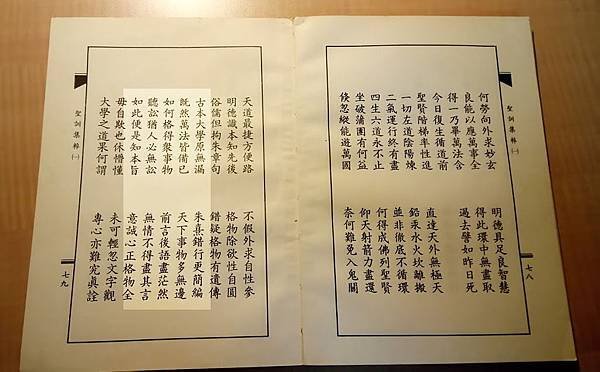 聖訓集粹㈠
何勞向外求妙玄　明德具足良智慧
良能以應萬事全　得此環中無盡取
得一乃畢萬法含　過去譬如昨日死
今日復生循道前
聖賢階梯率性進　直達天外無極天
一切左道陰陽煉　鉛汞水火坎離搬
二氣運行終有盡　並非徹底不循環
四生六道永不止　何得成佛列聖賢
坐破蒲團有何益　仰天射箭力盡還
倏忽縱能遊萬國　奈何難免入鬼關
七八
天道最捷方便路　不假外求自性參
明德識本知先後　格物除欲性自圓
俗儒但拘朱章句　錯疑格物有遺傳
古本大學原無漏　朱熹錯行更簡編
既然萬法皆備已　天下事物多無邊
如何格得眾事物　前言後語盡茫然
聽訟猶人必無訟　無情不得盡其言
如此便是知本旨　意誠心正格物全
毋自欺也休懵懂　未可輕忽文字觀
大學之道果何謂　專心亦難究真詮
聖訓集粹㈠
七九